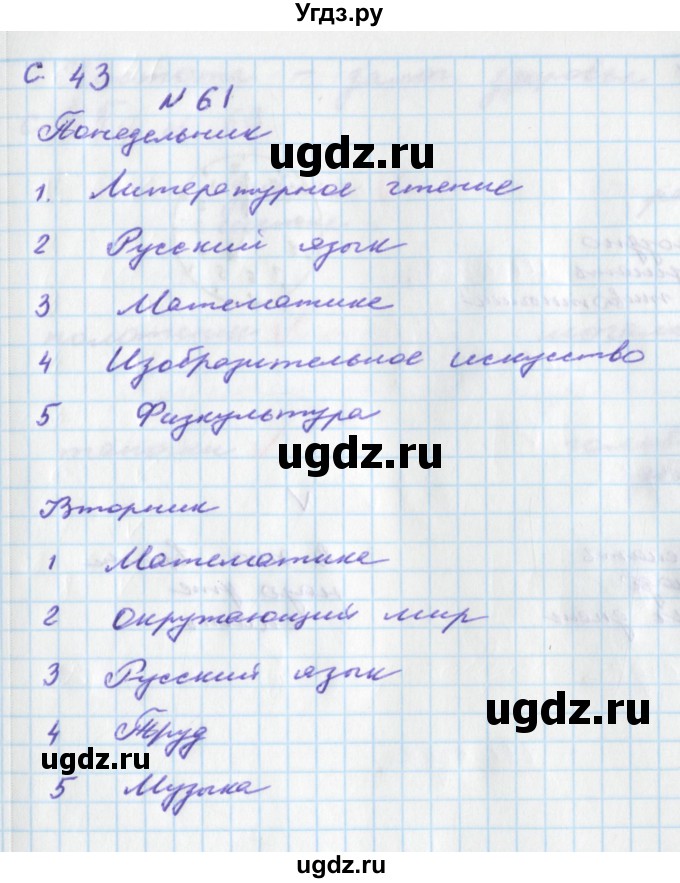 Угдз.ру
С. 43
№ 61
Понедельник
ugdz.ru
1. Литературное чтение
2 Русский язык
ugdz.ru
3 Математике
4 Изобразительное искусство
5 Физкультура
ugdz.ru
Вторник
1 Математике
2 Окружающий мир
ugdz.ru
3 Русский язык
ugdz.ru
4 Труд
ugdz.ru
5 Музыка
ugdz.ru